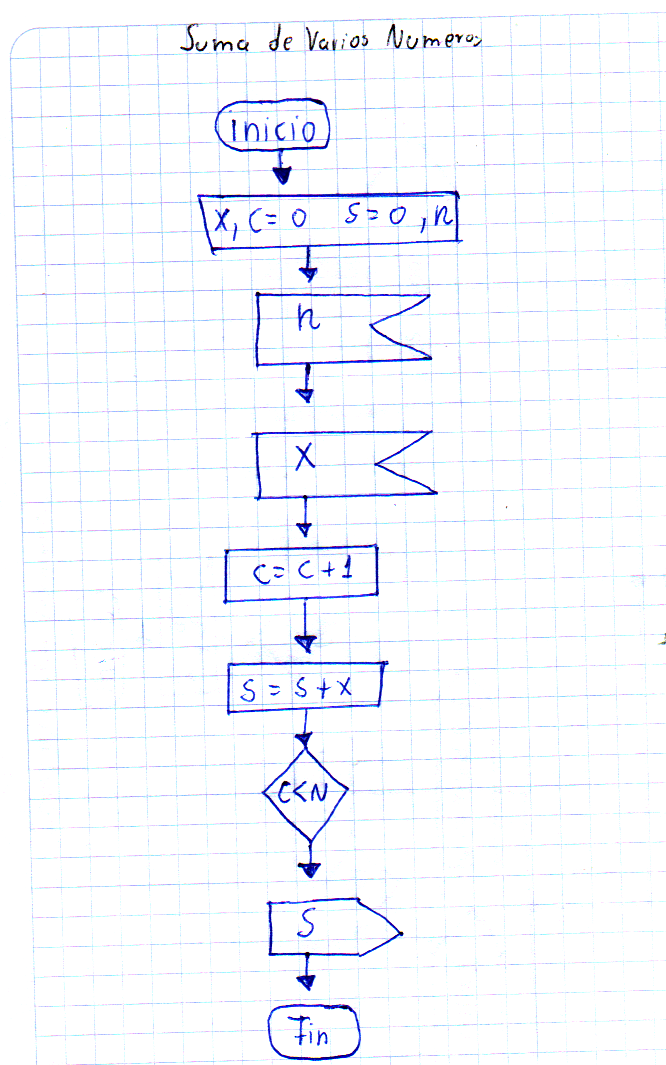 Suma de Varios Numeros
inicio
X, C=0 S=0, n
n
X
C = C+1
S = S+X
C<N
S
Fin